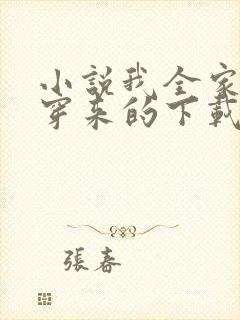 小說我全家
穿來的下載
張春